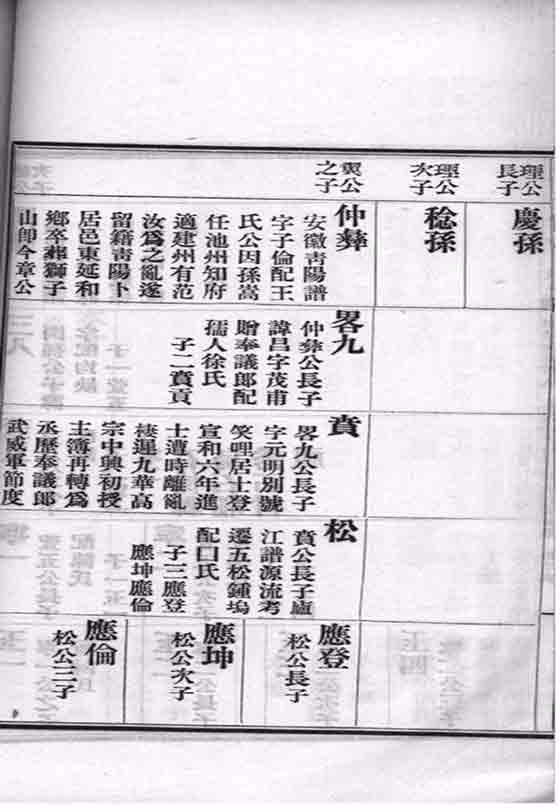 理公
長子
慶孫
理公
次子
稔孫
賓公
之子
仲彝
安徽青陽譜
字子倫配王
氏公因孫嵩
任池州知府
適建州有范
汝為之亂遂
留籍青陽卜
居邑東延和
鄉卒葬獅子
山即今章公
畧九
仲彝公長子
諱昌字茂甫
贈奉議郎配
孺人徐氏
子二賁貢
賁
畧九公長子
字元明別號
笑哩居士登
宣和六年進
士遭時離亂
棲遲九華高
宗中興初授
主簿再轉為
丞歷奉議郎
武威軍節度
松
賁公長子廬
江譜源流考
遷五松鍾塢
配口氏
子三應登
應坤應倫
應登
松公長子
應坤
松公次子
應倫
松公三子